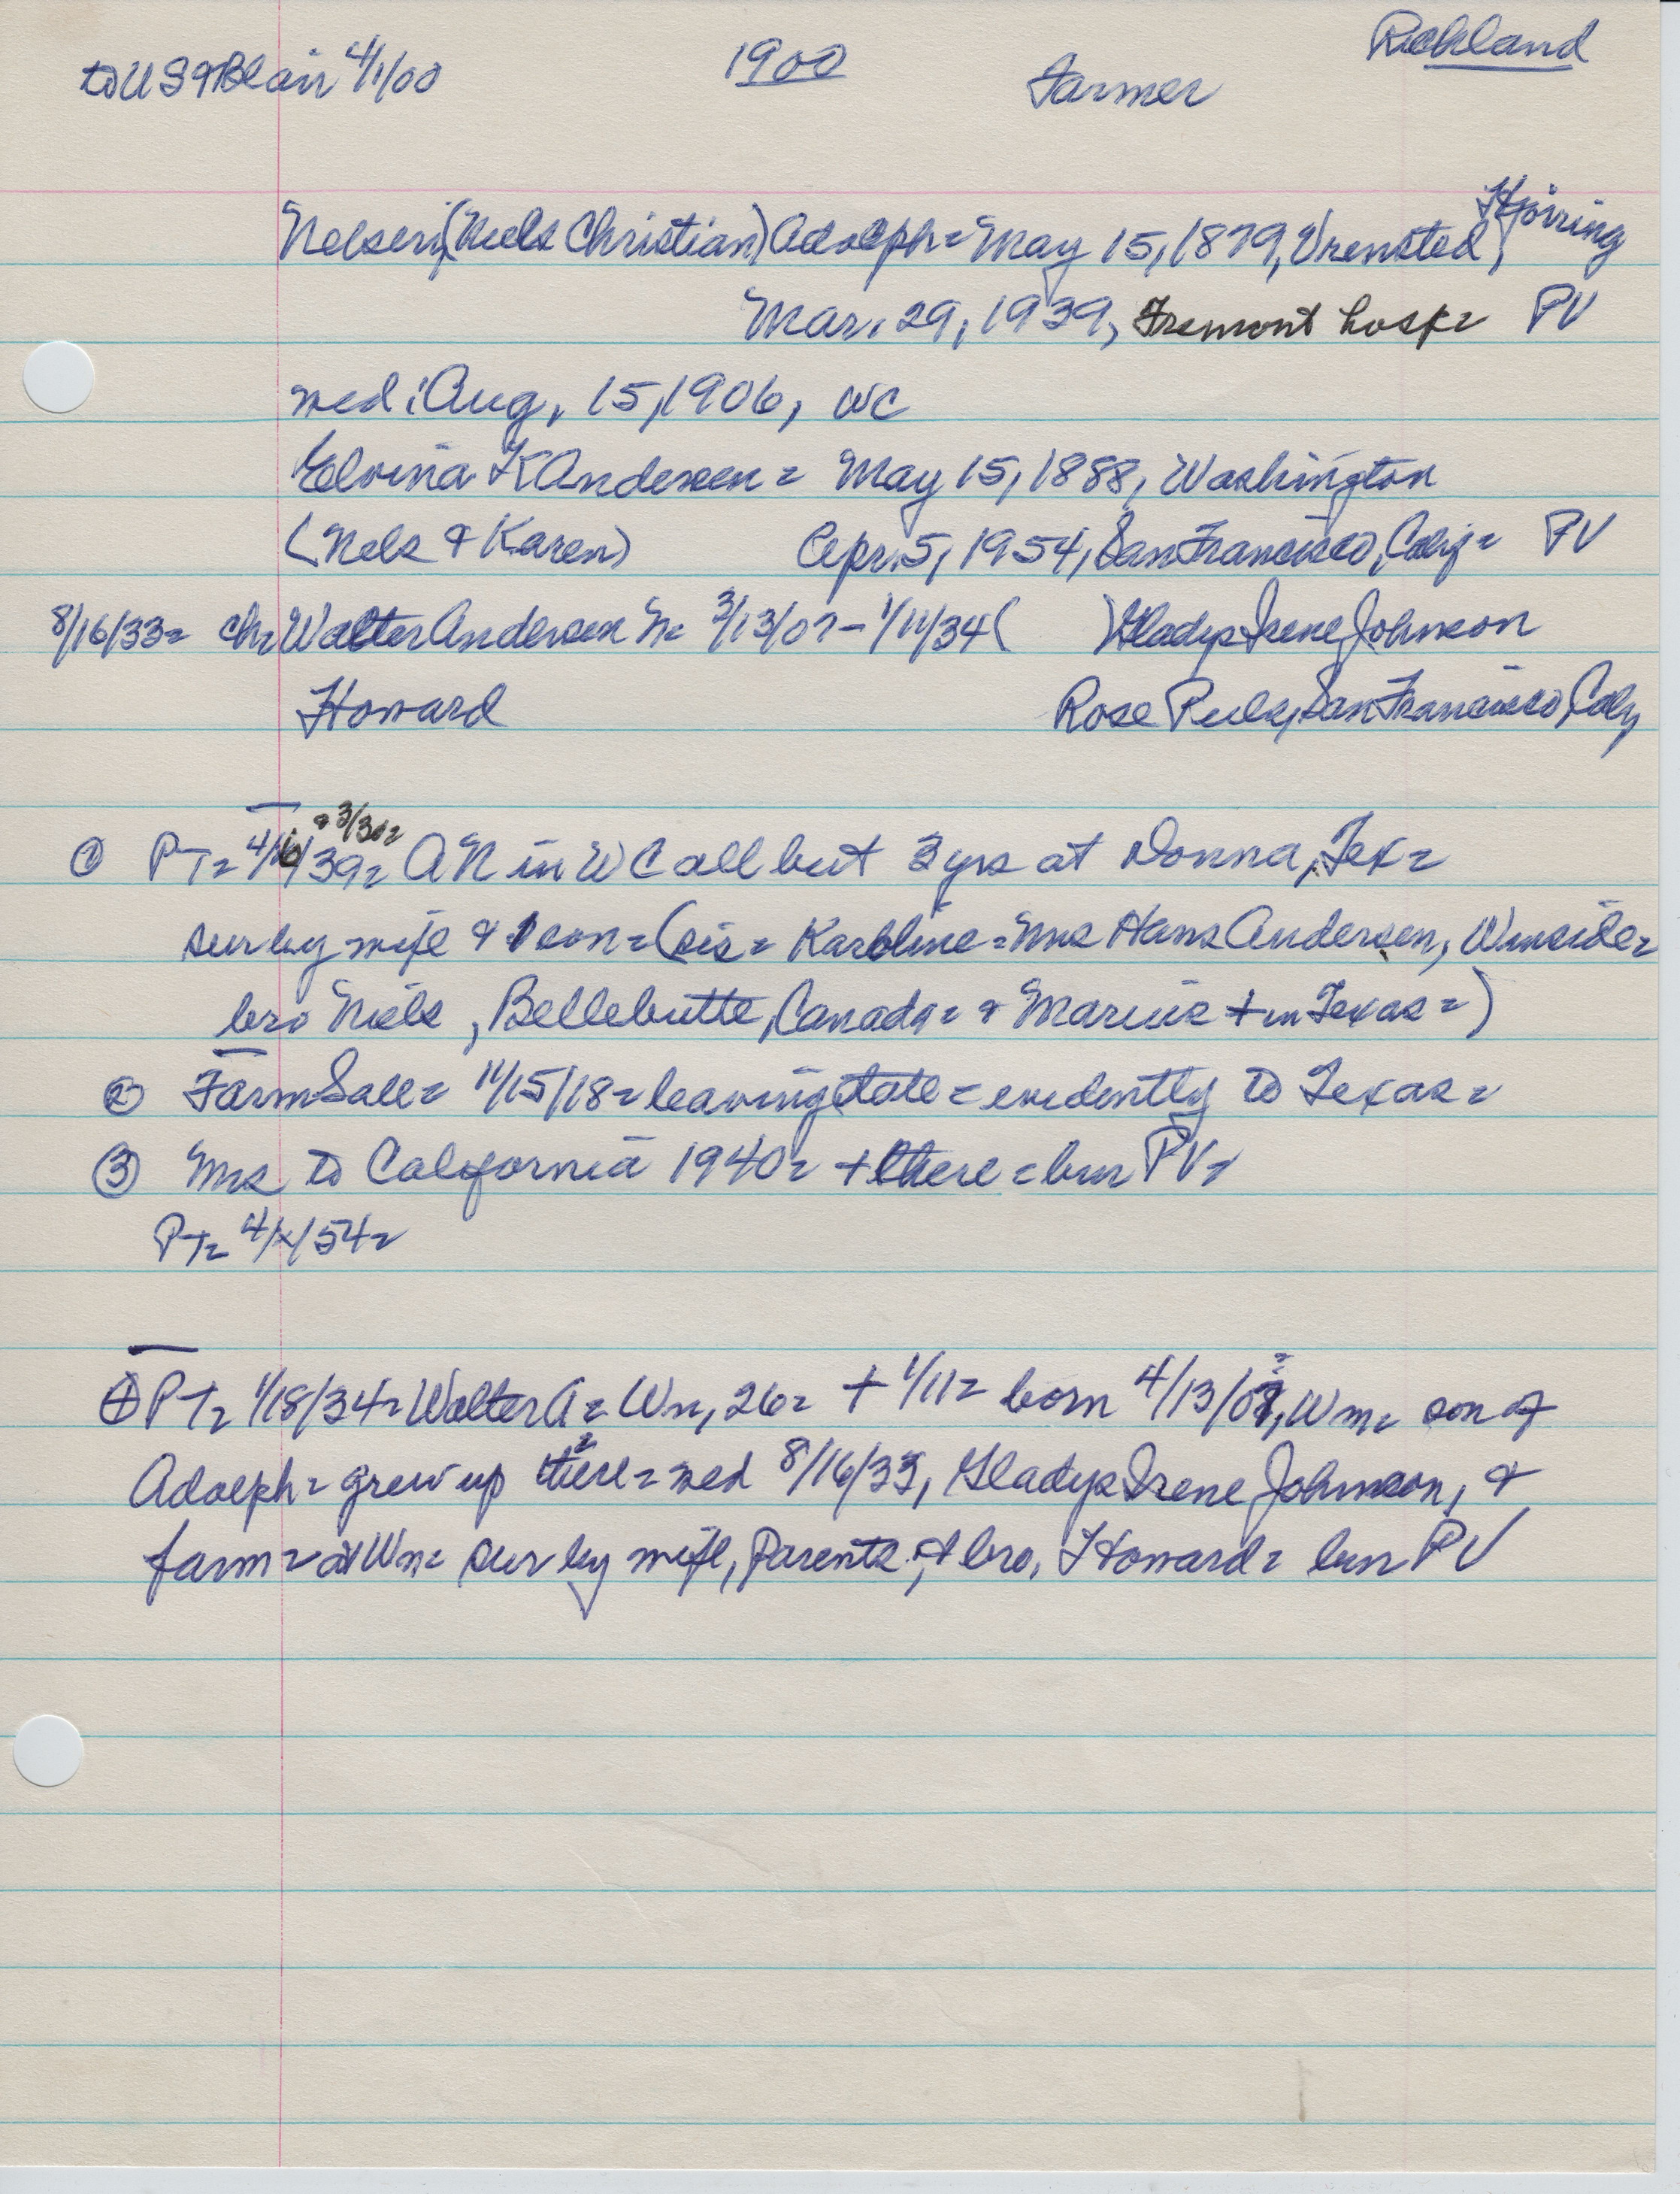 to US & Blair 4/1/00 1900 Farmer Richland
Nelsen, (Neels Christian) Adolph = May 15, 1879, Vrensted, Hjörring
Mar. 29, 1939, Fremont hosp = PV
med: Aug. 15, 1906, WC
Elvina K Andersen = May 15, 1888, Washington
(Nels & Karen) Apr. 5, 1954, San Francisco, Calif = PV
8/16/33 = ch = Walter Andersen N = 3/13/07 - 1/11/34 ( ) Gladys Irene Johnson
Howard Rose Puls, San Francisco, Calif
① PT = 4/6/39 = & 3/30 = AN in WC all but 3 yrs at Donna, Tex =
sur by wife & 1 son = (sis = Karoline = Mrs Hans Andersen, Winside =
bro Niels, Bellebutte, Canada = & Marius + in Texas =)
② Farm Sale = 11/15/18 = leaving state = evidently to Texas =
③ Mrs to California 1940 = + there = bur PV =
PT = 4/x/54 =
④ PT = 1/18/34 = Walter A = Wn, 26 = + 1/11 = born 4/13/07, Wn = son of
Adolph = grew up there = med 8/16/33, Gladys Irene Johnson, &
farm = at Wn = sur by wife, parents, & bro, Howard = bur PV